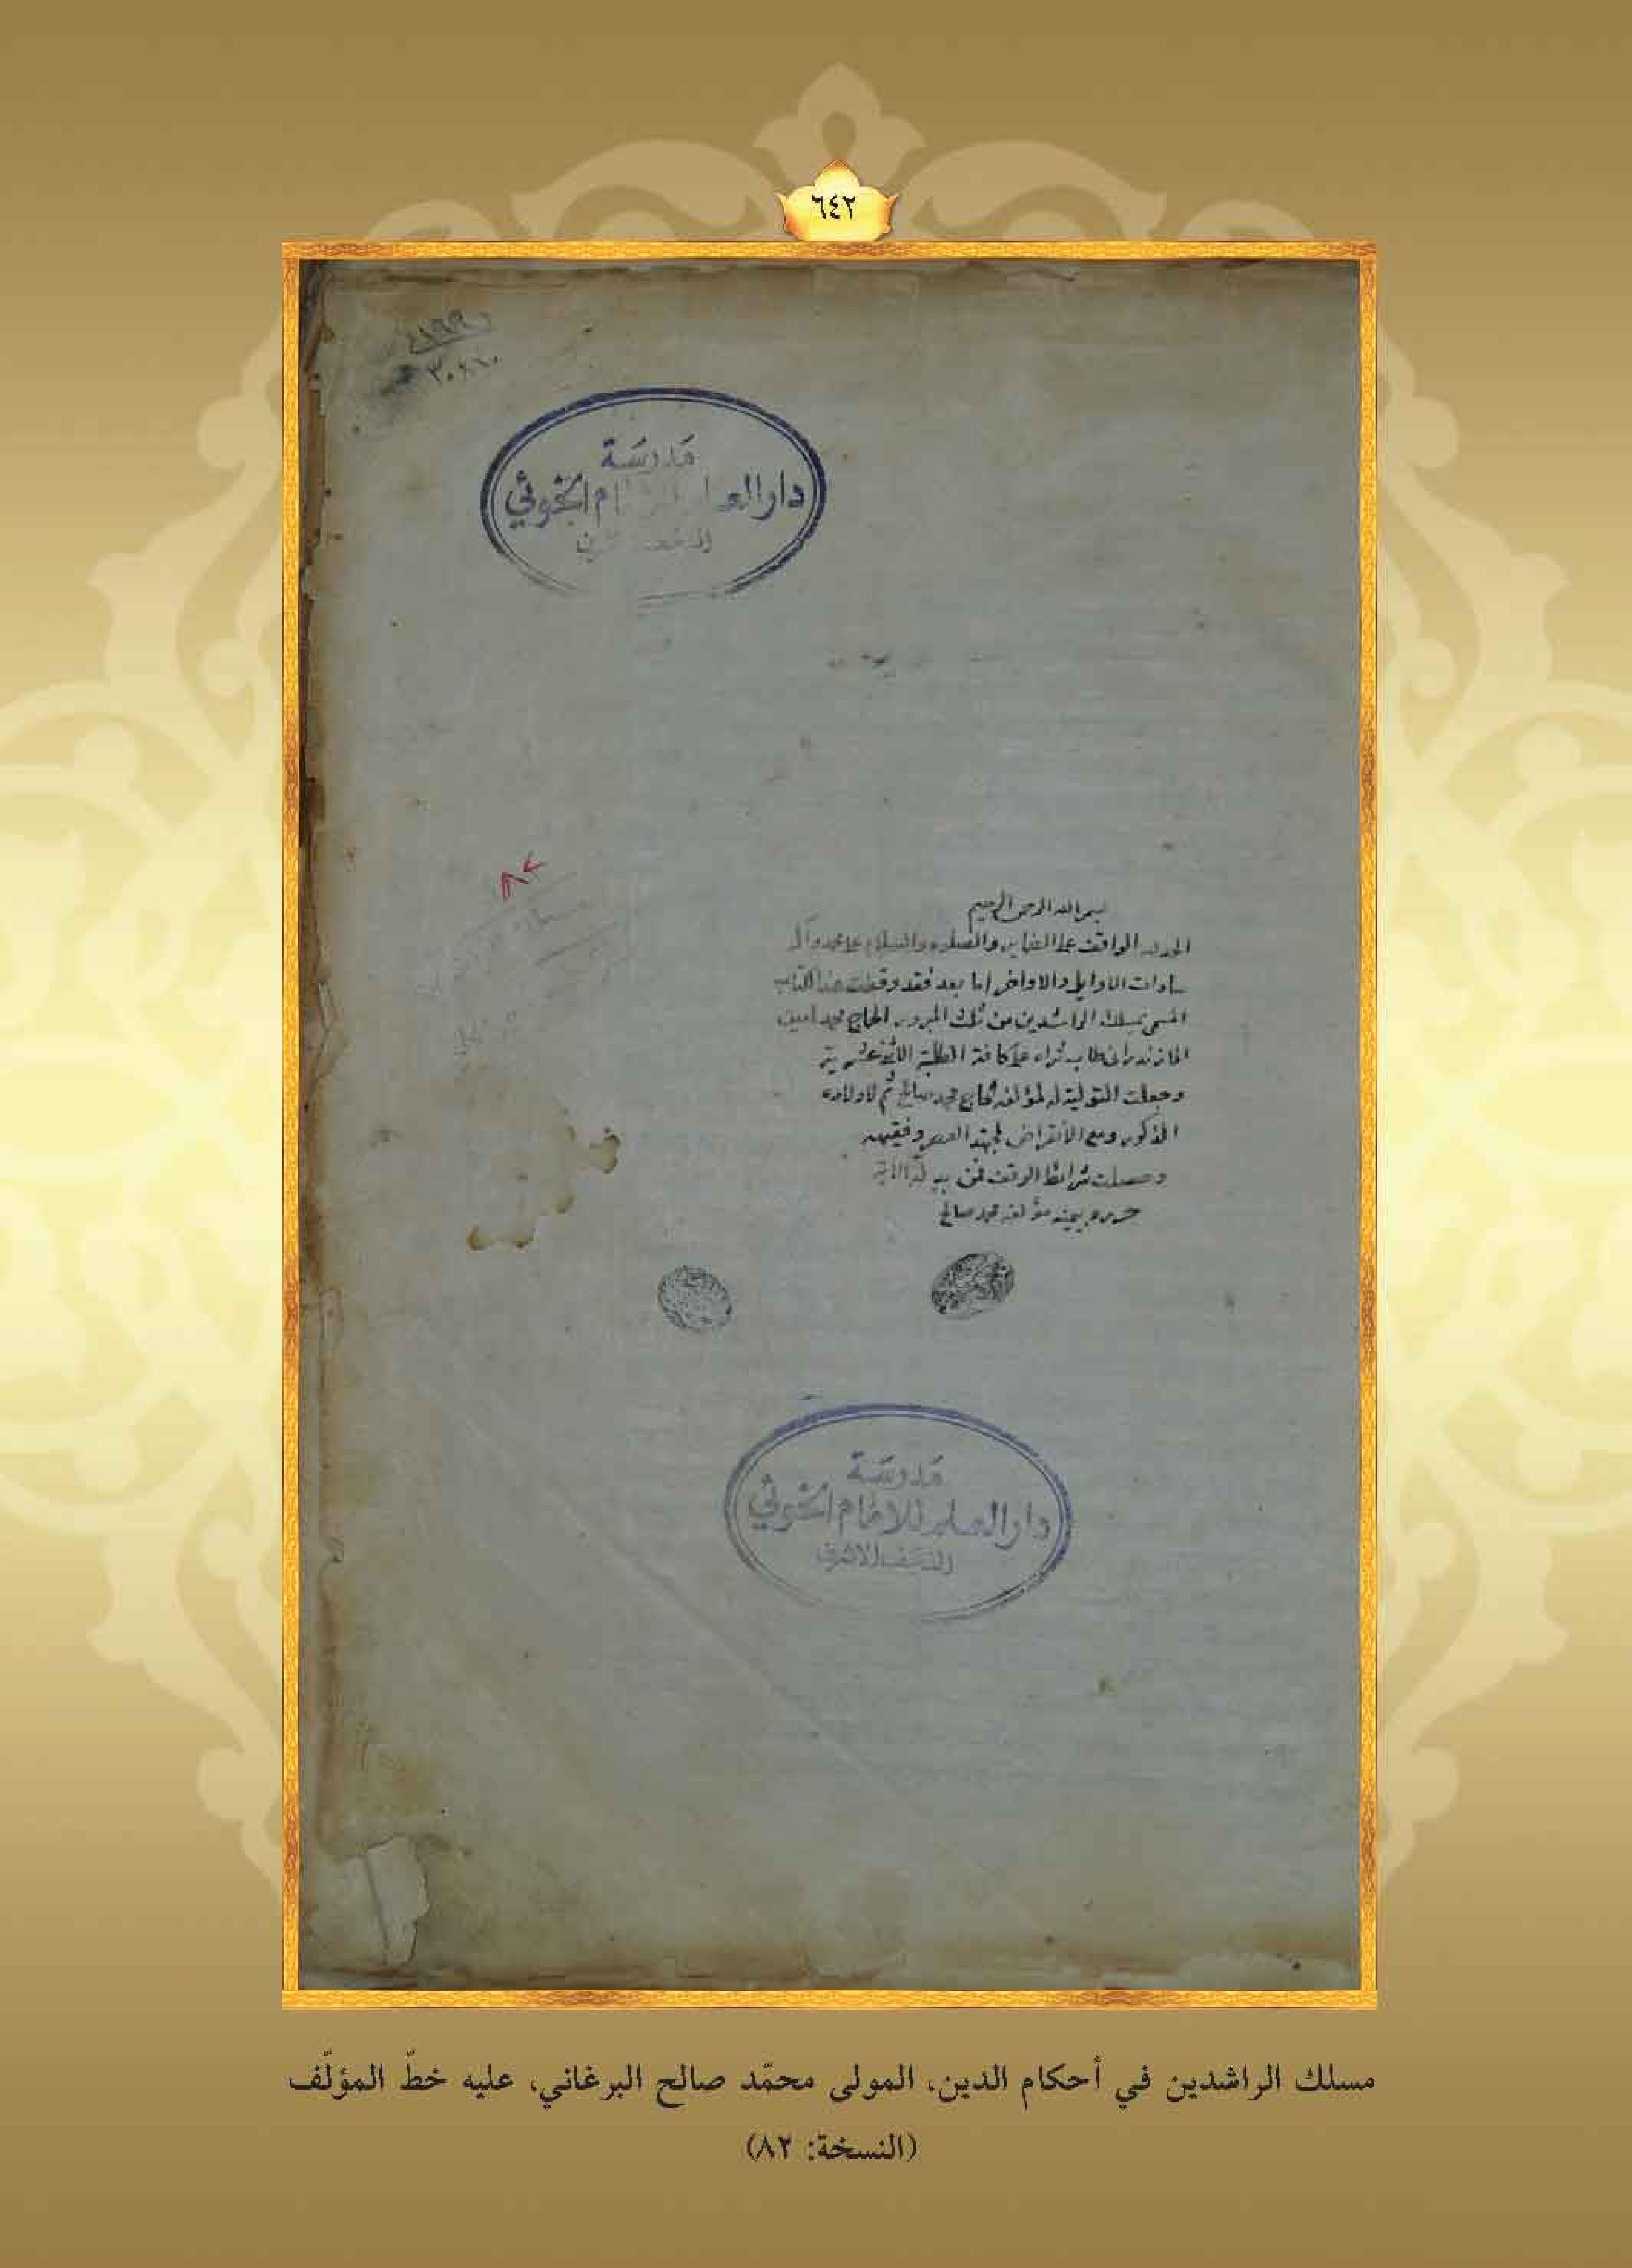 ٦٤٢
مَدرسَة
دار العلم للامام الخوئي
النجف الاشرف
بسم الله الرحمن الرحيم
الحمد لله الواقف على الضماير والصلوة والسلام على محمد وآل
سادات الاوايل والاواخر اما بعد فقد وقفت هذا الكتاب
المسمى بمسلك الراشدين من ثلث المبرور الحاج محمد امين
المازندراني طاب ثراه على كافة الطلبة الاثنى عشرية
وجعلت التولية لمؤلفه الحاج محمد صالح ثم لاولاده
الذكور ومع الانقراض لمجتهد العصر وفقيهه
وحصلت شرائط الوقف فمن بدله الاية
حرره بيمينه مؤلفه محمد صالح
مَدرسَة
دار العلم للامام الخوئي
النجف الاشرف
مسلك الراشدين في أحكام الدين، المولى محمّد صالح البرغاني، عليه خطّ المؤلّف
(النسخة: ٨٢)